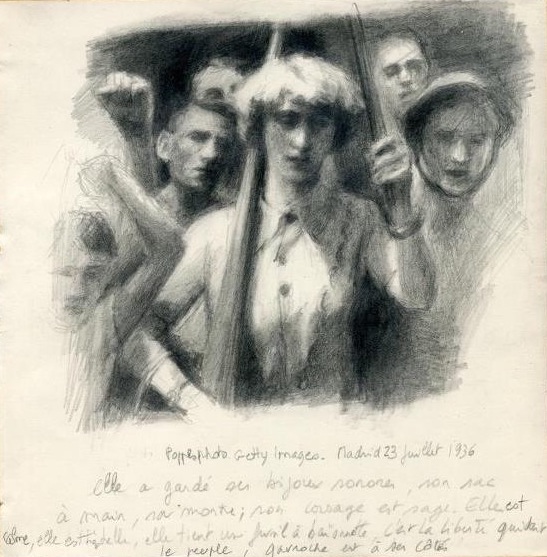 Popperphoto Getty Images. Madrid 23 juillet 1936
Elle a gardé ses bijoux sonores, son sac
à main, sa montre; son courage est sage. Elle est
calme, elle est belle, elle tient un fusil à baïonnette. C'est la liberté guidant
le peuple, gavroche est à ses côtés